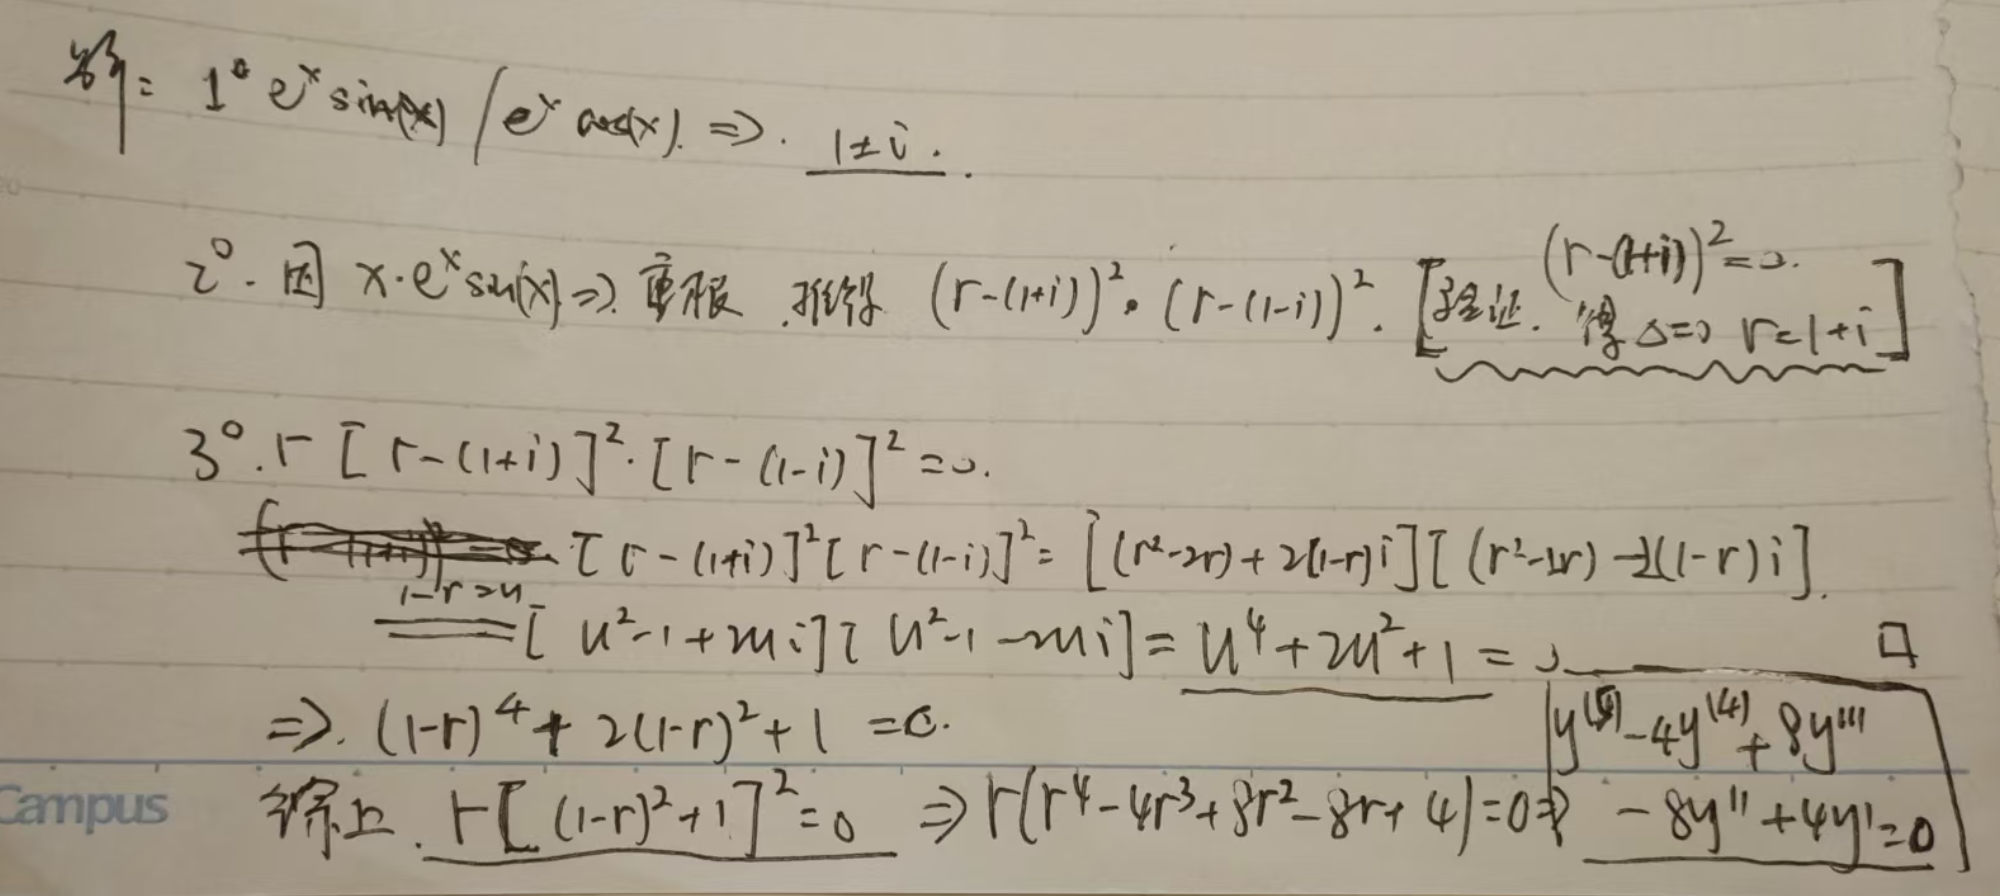 解: 1° e^x sin(x) / e^x cos(x). ⇒. 1±i.
2°. 因 x·e^x sin(x) ⇒. 重根. 推得 (r-(1+i))²·(r-(1-i))². [验证. (r-(1+i))²=0. 得 Δ=0 r=1+i]
3°. r[r-(1+i)]²·[r-(1-i)]²=0.
[r-(1+i)]²[r-(1-i)]²=[(r²-2r)+2(1-r)i][(r²-2r)-2(1-r)i].
1-r=u
=[u²-1+2ui][u²-1-2ui]=u⁴+2u²+1=0 □
⇒. (1-r)⁴+2(1-r)²+1=0.
综上. r[(1-r)²+1]²=0 ⇒ r(r⁴-4r³+8r²-8r+4)=0 ⇒
y^(5)-4y^(4)+8y'''
-8y''+4y'=0
Campus